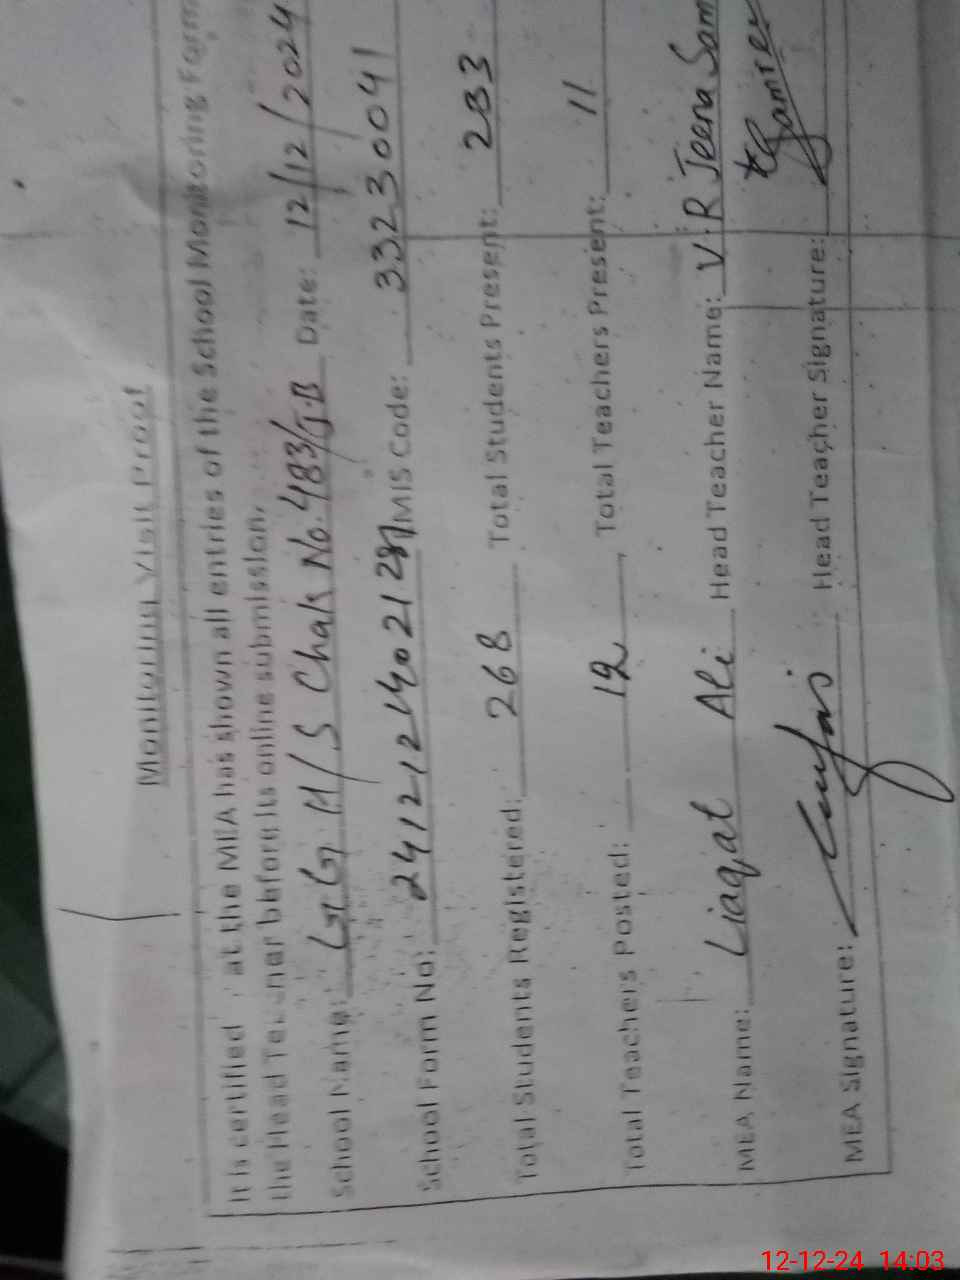 Monitoring Visit Proof
It is certified at the MEA has shown all entries of the School Monitoring Form
the Head Teacher before its online submission.
School Name: G G H/S Chak No. 483/J.B Date: 12/12/2024
School Form No: MIS Code: 33230041
Total Students Registered: 268 Total Students Present: 233
Total Teachers Posted: 12 Total Teachers Present: 11
MEA Name: Liaqat Ali Head Teacher Name: V.R Jeena Sam
MEA Signature: Head Teacher Signature:
12-12-24 14:03